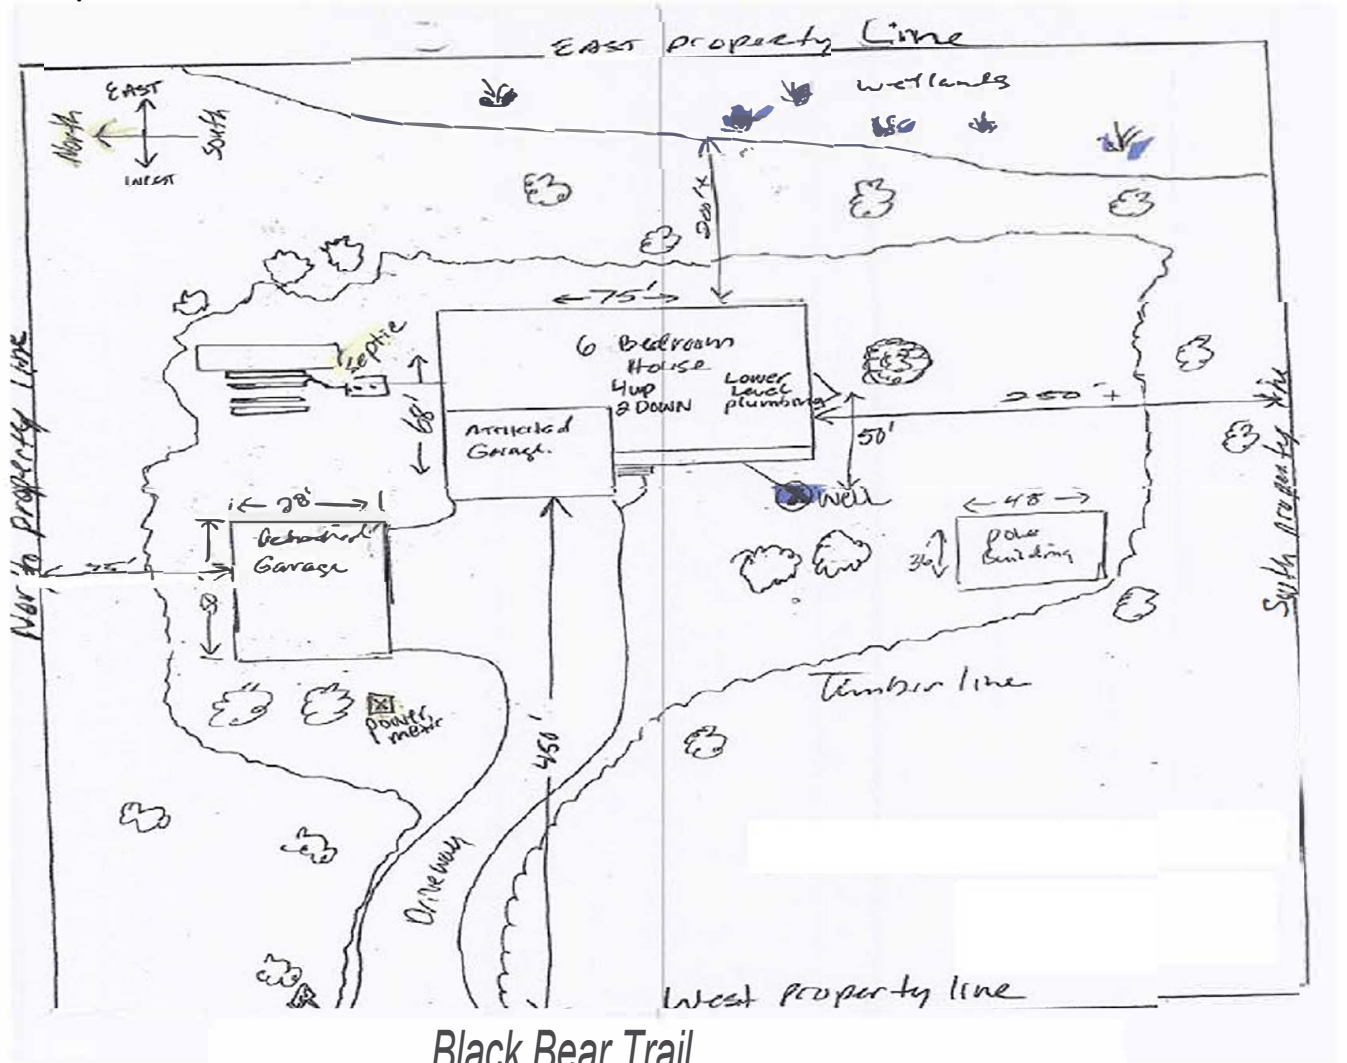 EAST property Line
EAST
North
South
WEST
wetlands
200'±
75'
6 Bedroom
House
4 up
2 DOWN
Lower
Level
plumbing
Septic
68'
Attached
Garage.
50'
250'+
Well
28'
Detached
Garage
48'
pole
Building
36'
North property line
South property line
power
meter
Timber line
450'
Driveway
West property line
Black Bear Trail